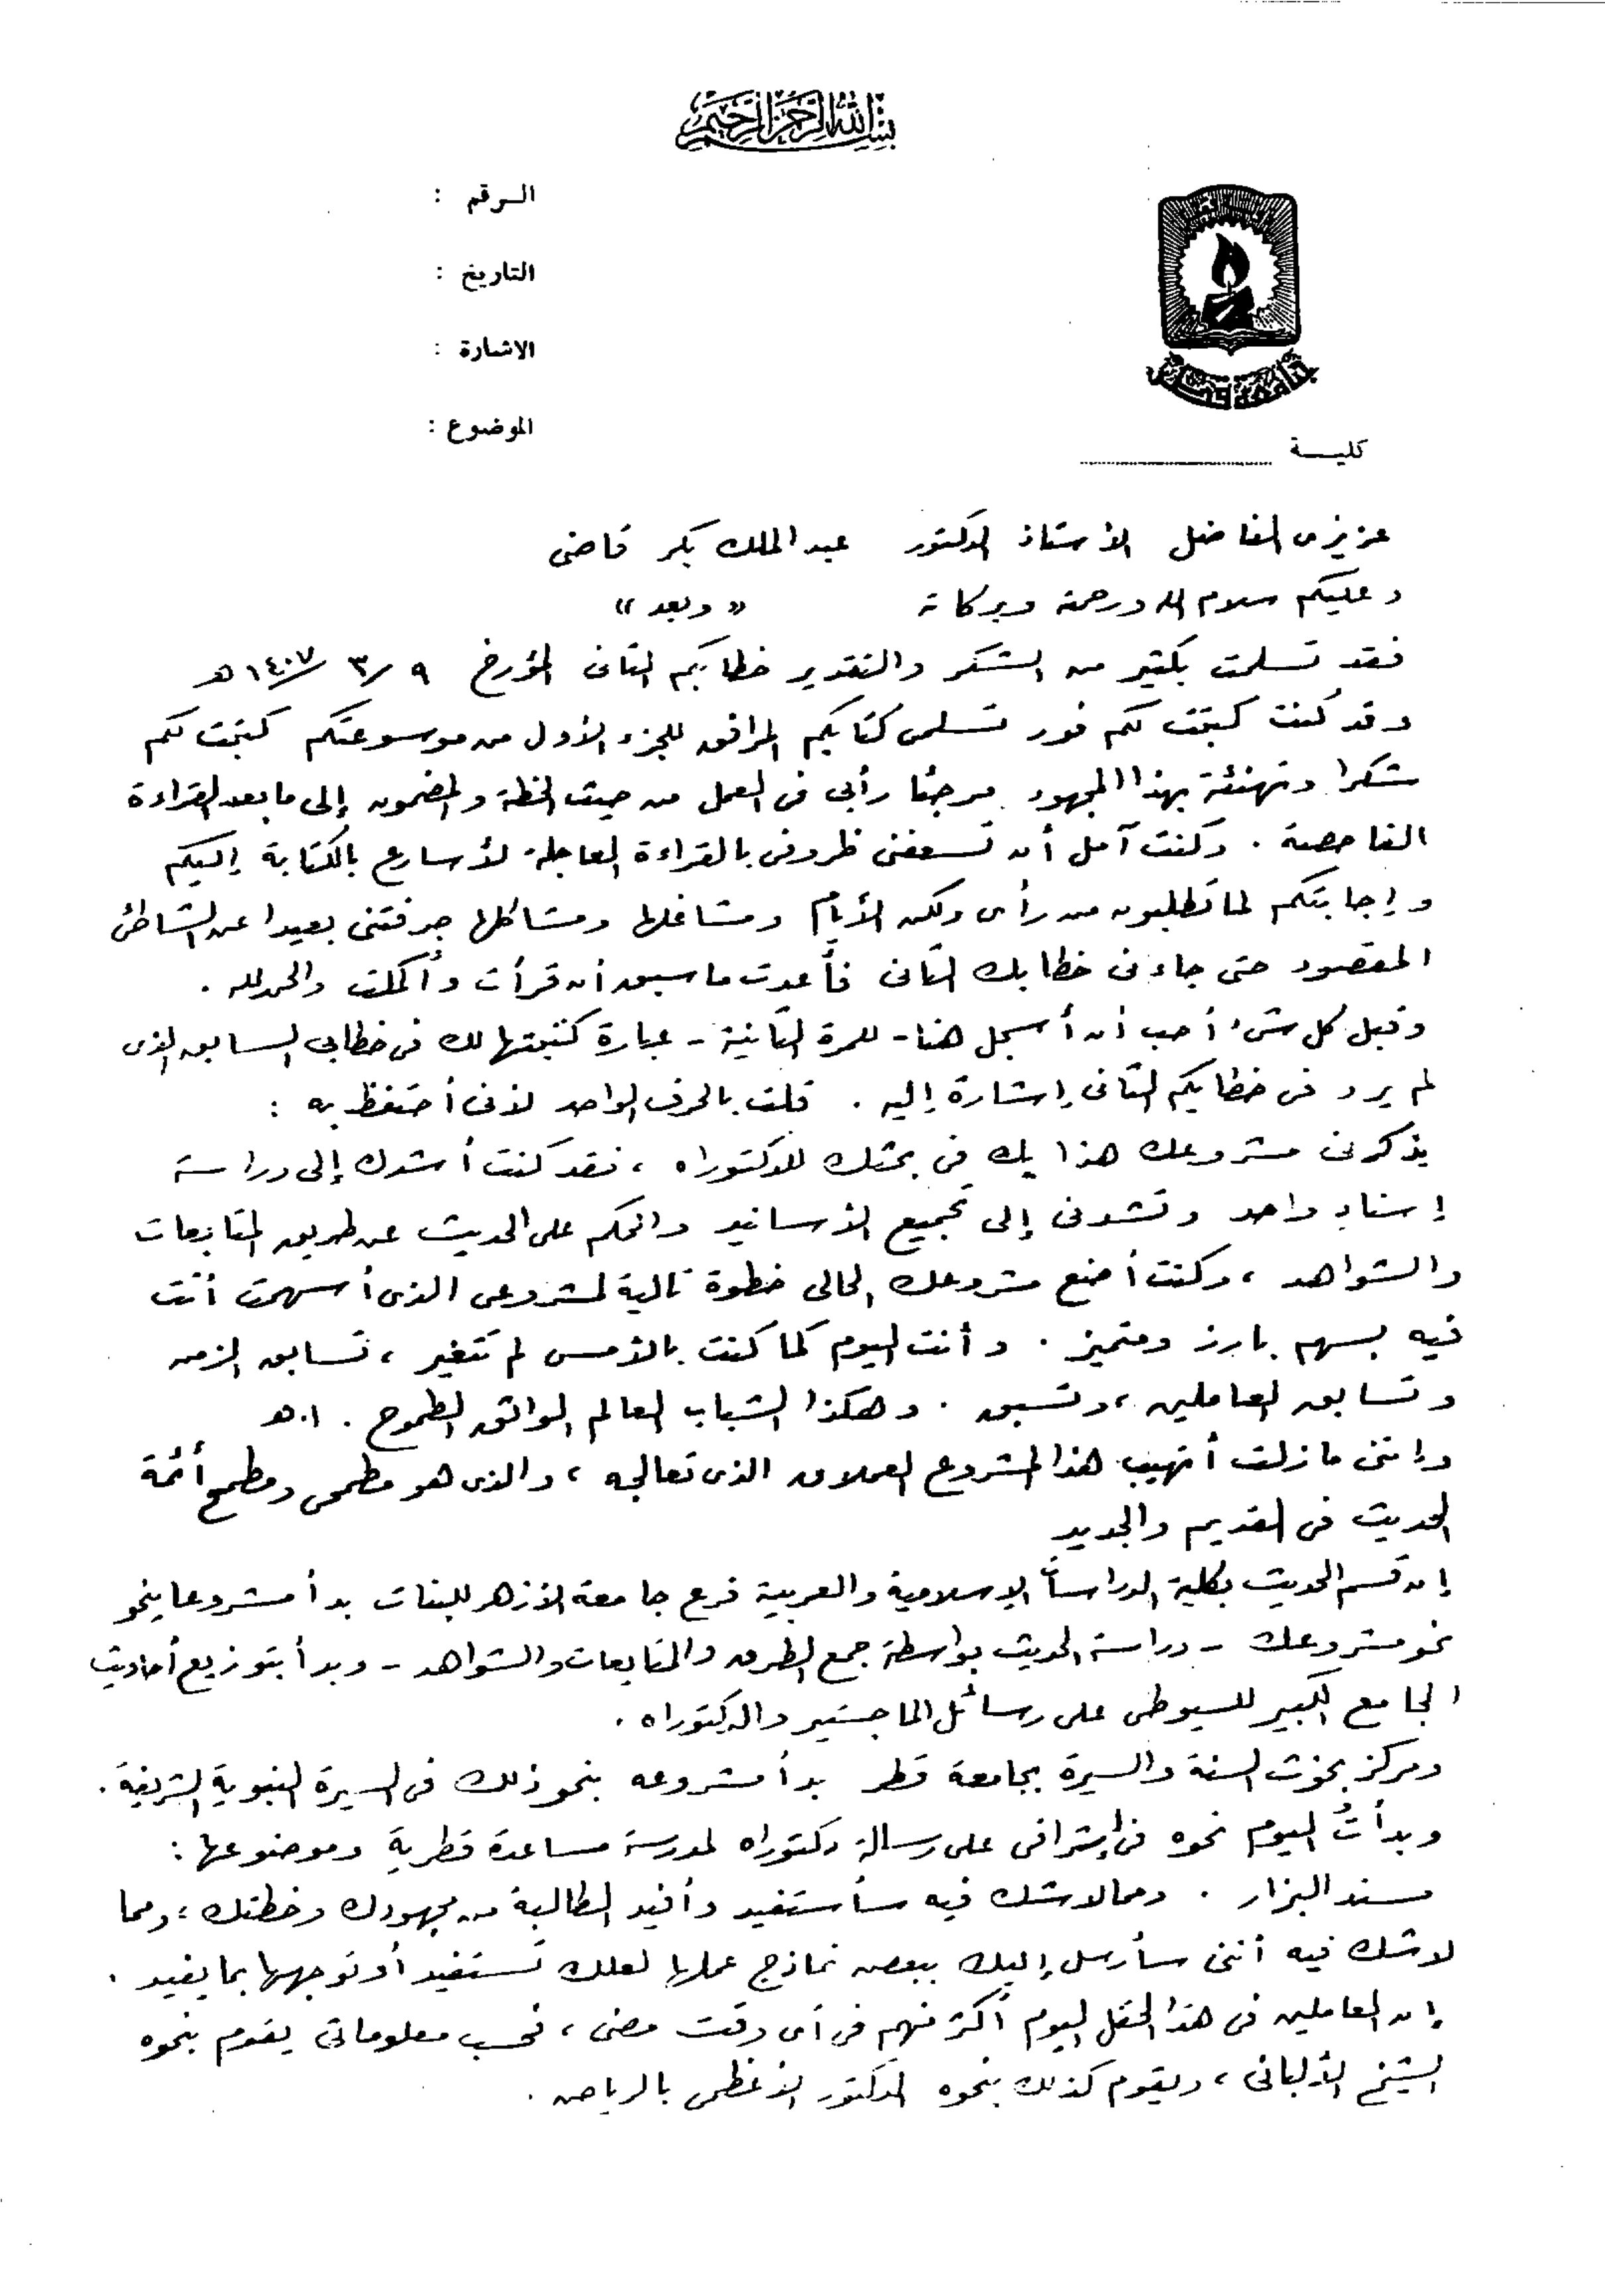 بسم الله الرحمن الرحيم
الرقم :
التاريخ :
الاشارة :
الموضوع :
جامعة قطر
كلية
عزيزى الفاضل الأستاذ الدكتور عبد الملك بكر قاضى
وعليكم سلام الله ورحمته وبركاته « وبعد »
فقد تسلمت بكثير من الشكر والتقدير خطابكم الثانى المؤرخ ٩ / ٣ / ١٤٠٧ هـ
وقد كنت كتبت لكم فور تسلمى كتابكم المرافق للجزء الأول من موسوعتكم كتبت لكم
شكرا وتهنئة بهذا المجهود مرجئا رأيى فى العمل من حيث الخطة والمضمون إلى ما بعد القراءة
الفاحصة . وكنت آمل أن تسعفنى ظروفى بالقراءة العاجلة لأسارع بالكتابة إليكم
وإجابتكم لما تطلبون من رأى ولكن الأيام ومشاغلها ومشاكلها جرفتنى بعيدا عن الشاطئ
المقصود حتى جاءنى خطابك الثانى فأعدت ما سبق أن قرأت وأكملت والحمد لله .
وقبل كل شئ أحب أن أسجل هنا - للمرة الثانية - عبارة كتبتها لك فى خطابى السابق الذى
لم يرد فى خطابكم الثانى إشارة إليه . قلت بالحرف الواحد لأنى أحتفظ به :
يذكرنى مشروعك هذا بك فى بحثك للدكتوراه ، فقد كنت أشدك إلى دراسة
إسناد واحد وتشدنى إلى تجميع الأسانيد والحكم على الحديث عن طريق المتابعات
والشواهد ، وكنت أضع مشروعك الحالى خطوة تالية لمشروعى الذى أسهمت أنت
فيه بسهم بارز ومتميز . وأنت اليوم كما كنت بالأمس لم تتغير ، تسابق الزمن
وتسابق العاملين ، وتسبق . وهكذا الشباب العالم الواثق الطموح . ا.هـ
وإننى ما زلت أتهيب هذا المشروع العملاق الذى تعالجه ، والذى هو مطمحى ومطمح أئمة
الحديث فى القديم والجديد
إن قسم الحديث بكلية الدراسات الإسلامية والعربية فرع جامعة الأزهر للبنات بدأ مشروعا ينحو
نحو مشروعك - دراسة الحديث بواسطة جمع الطرق والمتابعات والشواهد - وبدأ بتوزيع أحاديث
الجامع الكبير للسيوطى على رسائل الماجستير والدكتوراه .
ومركز بحوث السنة والسيرة بجامعة قطر بدأ مشروعه بنحو ذلك فى السيرة النبوية الشريفة .
وبدأتُ اليوم نحوه فى إشرافى على رسالة دكتوراه لمدرسة مساعدة قطرية وموضوعها :
مسند البزار . ومما لا شك فيه سأستفيد وأفيد الطالبة من مجهودك وخطتك ، ومما
لا شك فيه أننى سأرسل إليك ببعض نماذج عملها لعلك تستفيد أو توجهها بما يفيد .
إن العاملين فى هذا الحقل اليوم أكثر منهم فى أى وقت مضى ، فحسب معلوماتى يقوم بنحوه
الشيخ الألبانى ، ويقوم كذلك بنحوه الدكتور الأعظمى بالرياض .